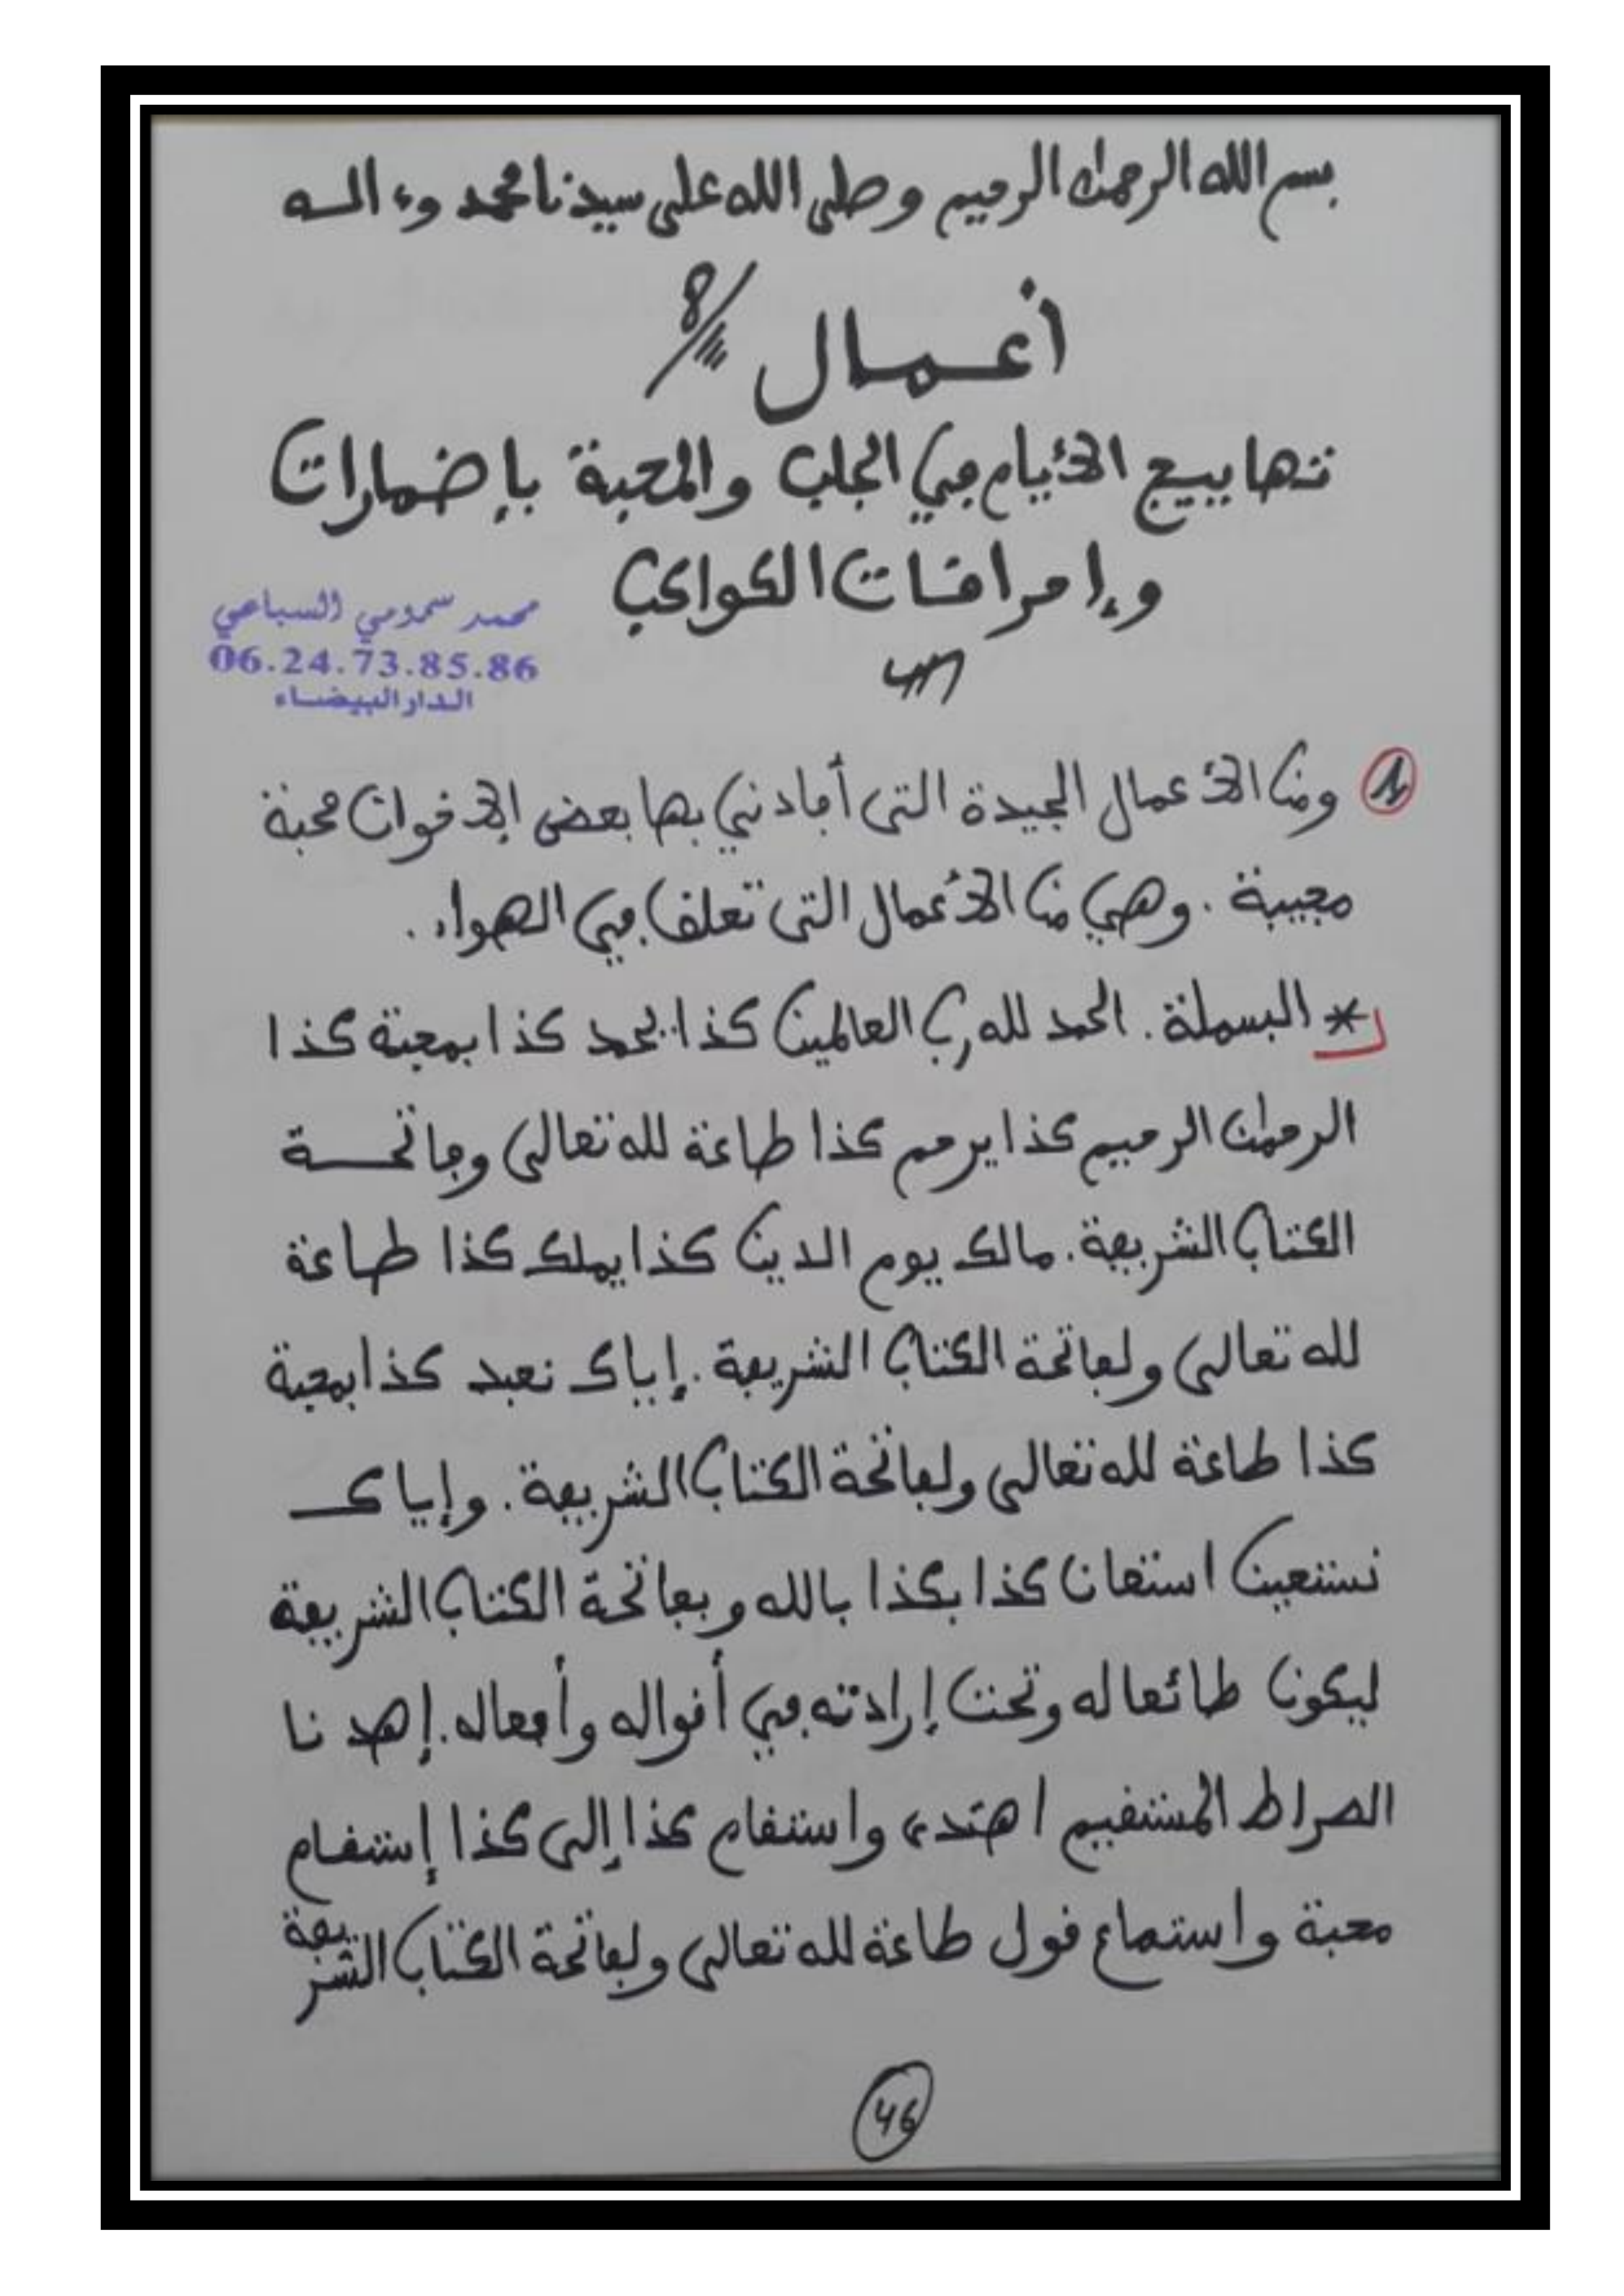 بسم الله الرحمان الرحيم وصلى الله على سيدنا محمد وءاله
أعمال
تهاييج الأيام في الجلب والمحبة بإضمارات
وإحراقات الكواكب
محمد سمومي السباعي
06.24.73.85.86
الدار البيضاء
1 ومن الأعمال الجيدة التى أفادني بها بعض الإخوان محبة
مجيبة . وهي من الأعمال التى تعلق في الهواء .
* البسملة . الحمد لله رب العالمين كذا يحمد كذا بمحبة كذا
الرحمان الرحيم كذا يرحم كذا طاعة لله تعالى وفاتحة
الكتاب الشريفة . مالك يوم الدين كذا يملك كذا طاعة
لله تعالى ولفاتحة الكتاب الشريفة . إياك نعبد كذا بمحبة
كذا طاعة لله تعالى ولفاتحة الكتاب الشريفة . وإياك
نستعين استعان كذا بكذا بالله وبفاتحة الكتاب الشريفة
ليكون طائعا له وتحت إرادته في أقواله وأفعاله . إهدنا
الصراط المستقيم اهتدى واستقام كذا إلى كذا إستقام
محبة واستماع قول طاعة لله تعالى ولفاتحة الكتاب الشريفة
46